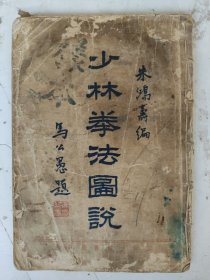 朱鴻壽編
少林拳法圖說
馬公愚題